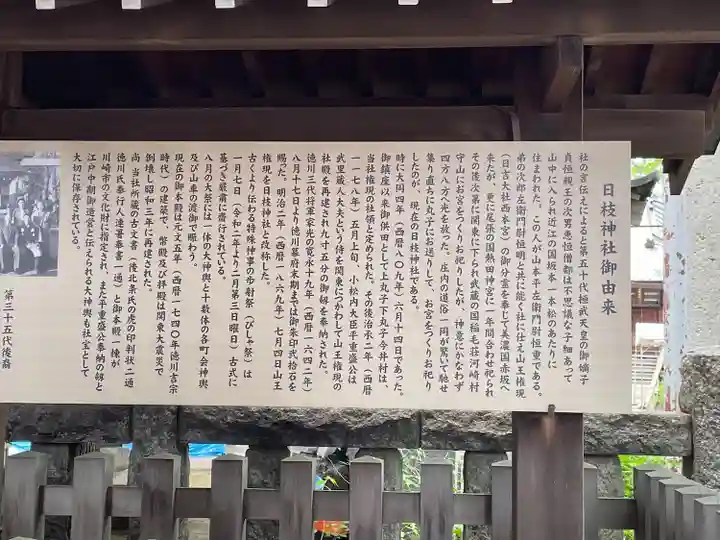 日枝神社御由来
社の言伝えによると第五十代桓武天皇の御嫡子
貞恒親王の次男恵恒僧都は不思議な子細あって
山中に入られ近江の国坂本一本松のあたりに
住まわれた。この人が山本平左衛門尉恒重である。
弟の次郎左衛門尉恒明と共に能く社に仕え山王権現
（日吉大社西本宮）の御分霊を奉じて美濃国赤坂へ
来たが、更に尾張の国熱田神宮に一年間合わせ祀られ
その後次第に関東に下られ武蔵の国稲毛荘河崎村
守山にお宮をつくりお祀りしたが、神意にかなわず
四方八方へ光を放った。庄内の道俗一同が驚いて馳せ
集り直ちに丸子にお送りして、お宮をつくりお祀り
したのが、現在の日枝神社である。
時に大同四年（西暦八〇九年）六月十四日であった。
御鎮座以来御供田として上丸子下丸子今井村は、
当社権現の社領と定められた。その後治承二年（西暦
一一七八年）五月上旬、小松内大臣平重盛公は
武里蔵人大夫という侍を関東につかわして山王権現の
社殿を再建され九寸五分の御鏡を奉納された。
徳川三代将軍家光の寛永十九年（西暦一六四二年）
八月十七日より徳川幕府末期までは御朱印弐拾石を
賜った。明治二年（西暦一八六九年）七月四日山王
権現を日枝神社と改称した。
古くより伝わる特殊神事の歩射祭（びしゃ祭）は
一月七日（令和二年より二月第三日曜日）古式に
基づき厳粛に斎行されている。
八月の大祭には一体の大神輿と十数体の各町会神輿
及び山車の渡御で賑わう。
現在の御本殿は元文五年（西暦一七四〇年徳川吉宗
時代）の建築で、幣殿及び拝殿は関東大震災で
倒壊し昭和三年に再建された。
尚当社所蔵の古文書（後北条氏の虎の印判状二通
徳川氏奉行人連署奉書一通）と御本殿一棟が
川崎市の文化財に指定され、また平重盛公奉納の鏡と
江戸中期御造営と伝えられる大神輿も社宝として
大切に保存されている。
第三十五代後裔